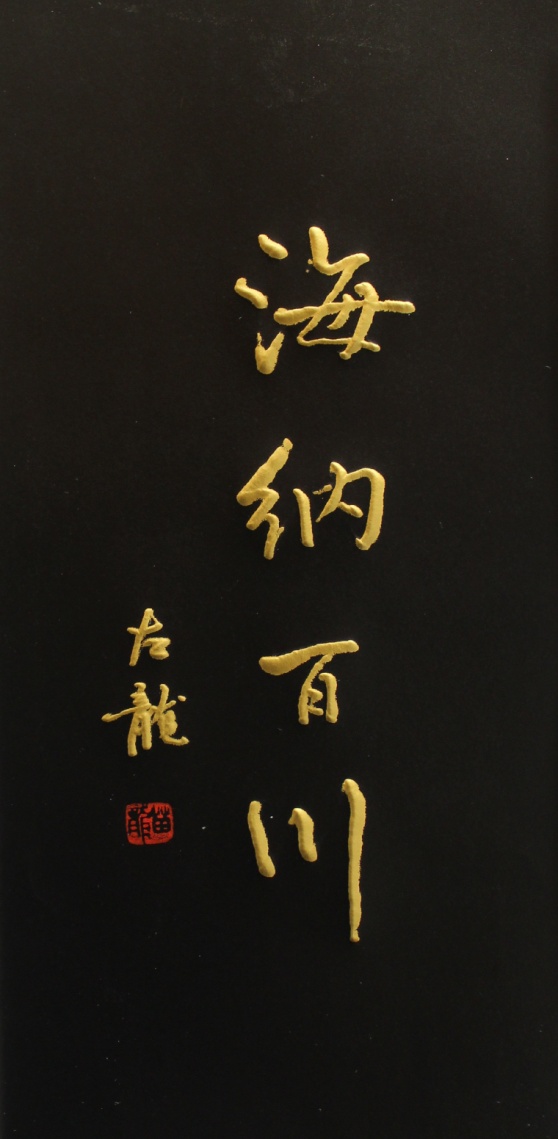 海纳百川
古龍